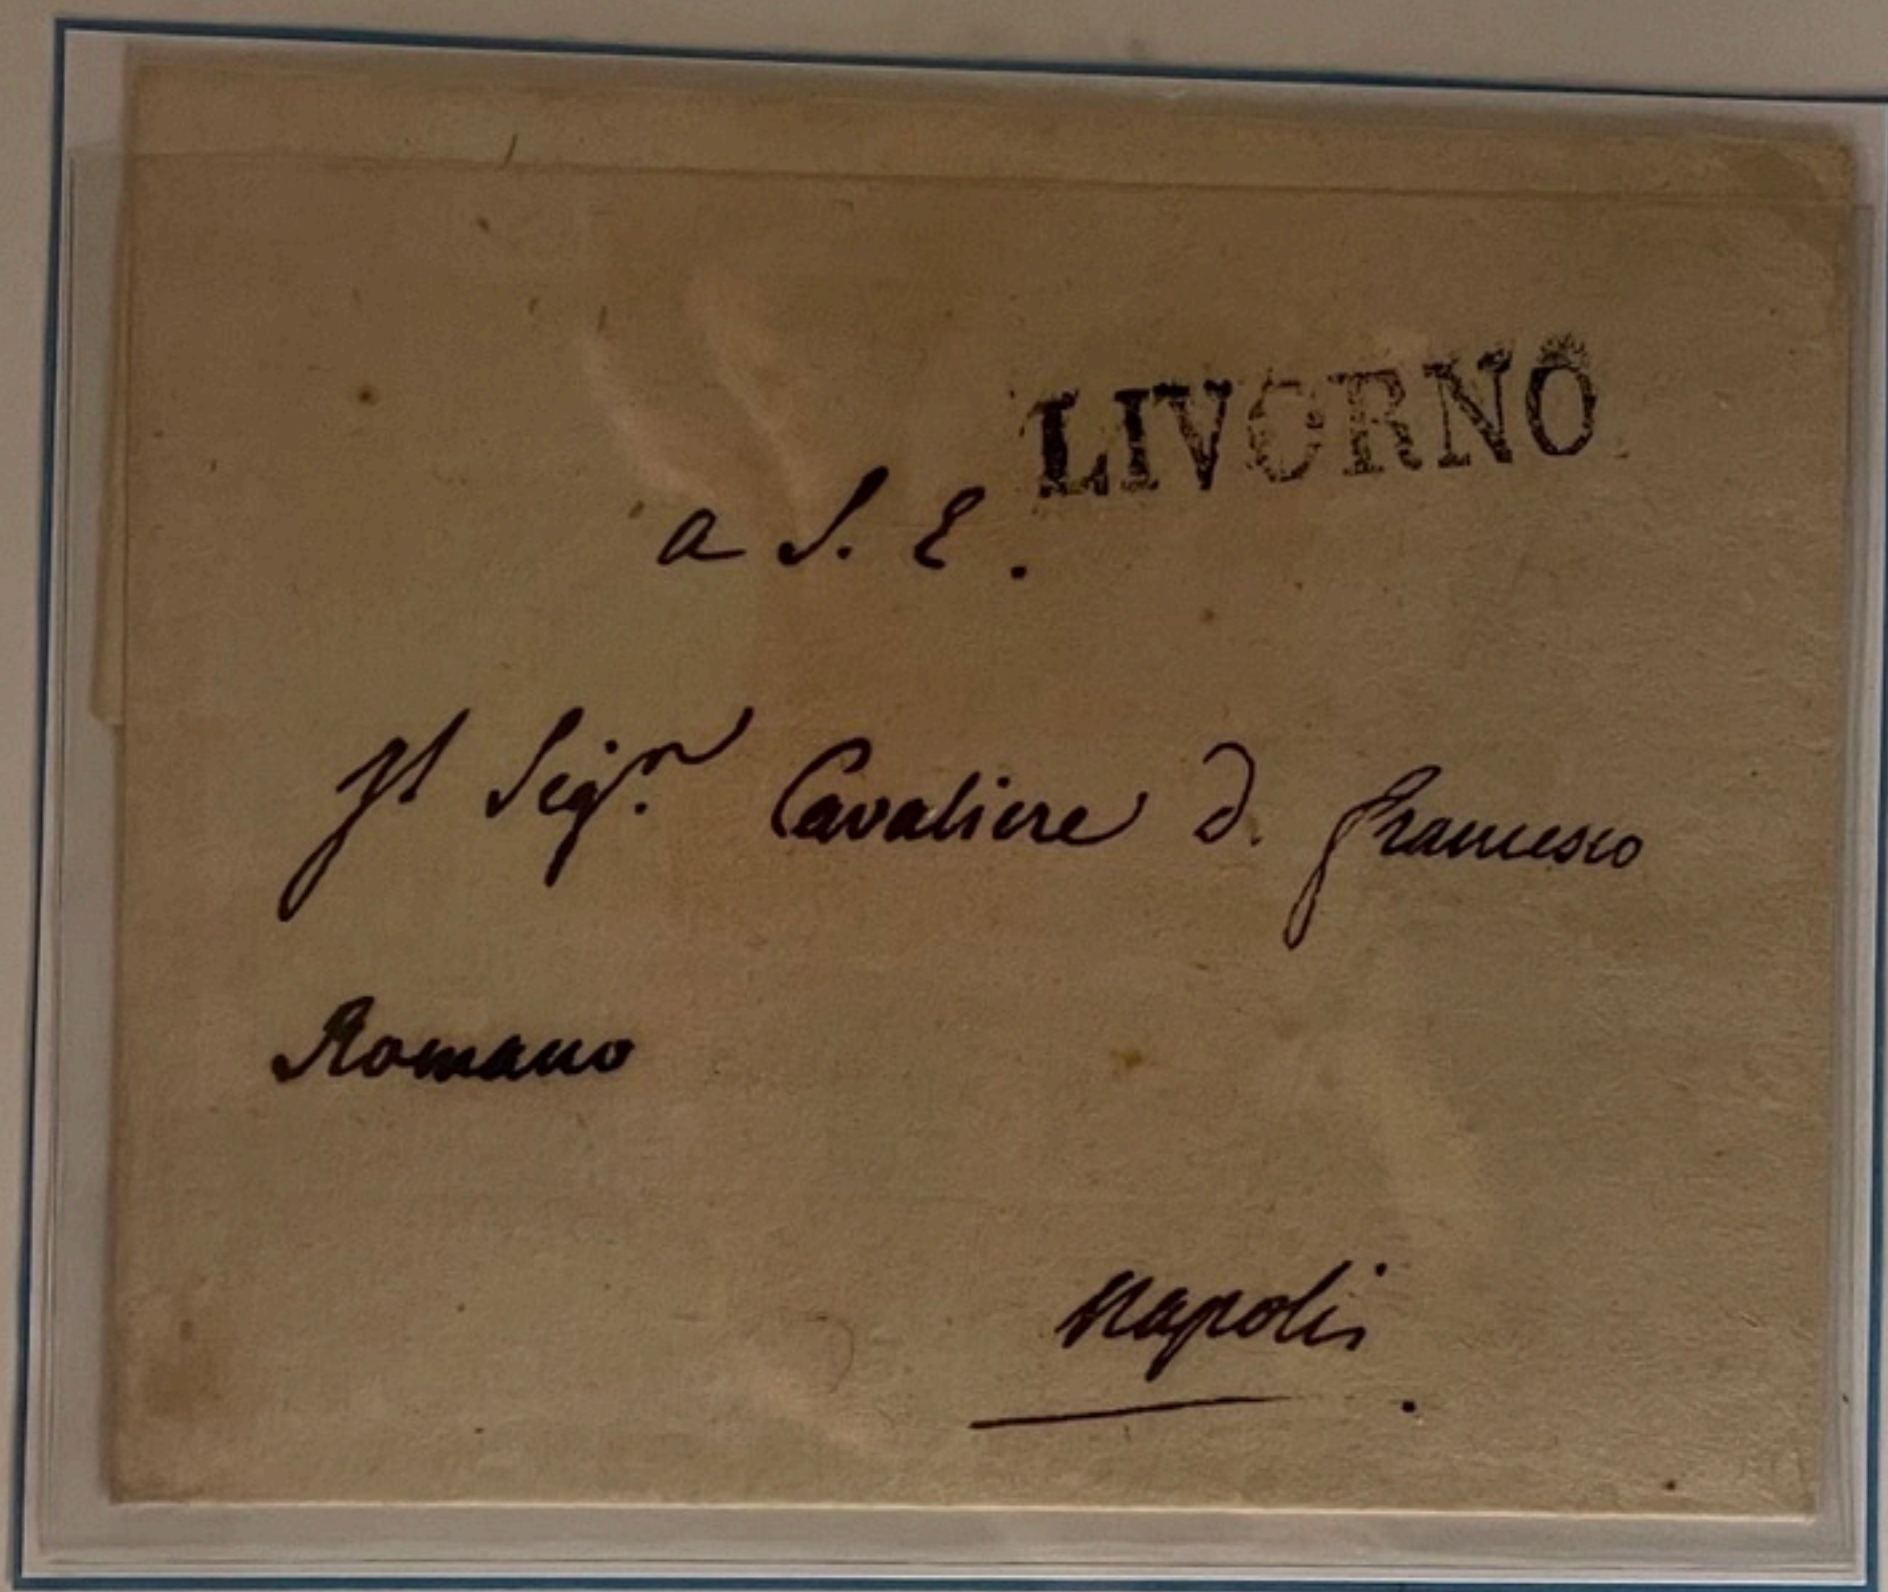 LIVORNO
a S. E.
Il Sigr. Cavaliere D. Francesco
Romano
Napoli.